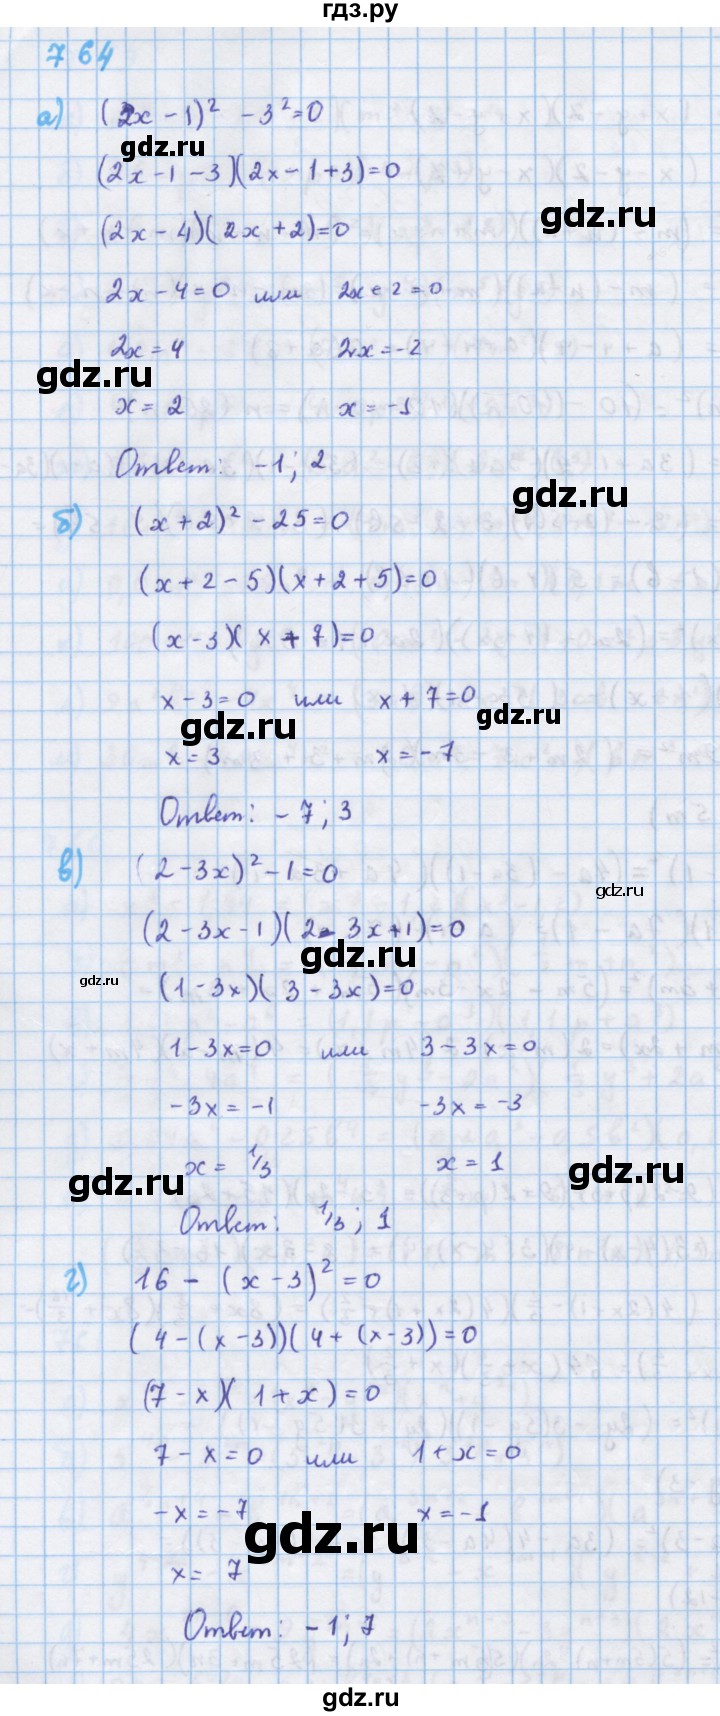 гдз.ру
764
а) (2x - 1)² - 3² = 0
gdz.ru
(2x - 1 - 3)(2x - 1 + 3) = 0
gdz.ru
(2x - 4)(2x + 2) = 0
2x - 4 = 0 или 2x + 2 = 0
2x = 4 2x = -2
gdz.ru
x = 2 x = -1
Ответ: -1; 2
gdz.ru
б) (x + 2)² - 25 = 0
(x + 2 - 5)(x + 2 + 5) = 0
(x - 3)(x + 7) = 0
x - 3 = 0 или x + 7 = 0
gdz.ru gdz.ru
x = 3 x = -7
Ответ: -7; 3
в) (2 - 3x)² - 1 = 0
gdz.ru
(2 - 3x - 1)(2 - 3x + 1) = 0
gdz.ru
gdz.ru
(1 - 3x)(3 - 3x) = 0
1 - 3x = 0 или 3 - 3x = 0
-3x = -1 -3x = -3
x = 1/3 x = 1
gdz.ru gdz.ru
Ответ: 1/3; 1
г) 16 - (x - 3)² = 0
(4 - (x - 3))(4 + (x - 3)) = 0
(7 - x)(1 + x) = 0
7 - x = 0 или 1 + x = 0
-x = -7 x = -1
gdz.ru
x = 7
Ответ: -1; 7
gdz.ru